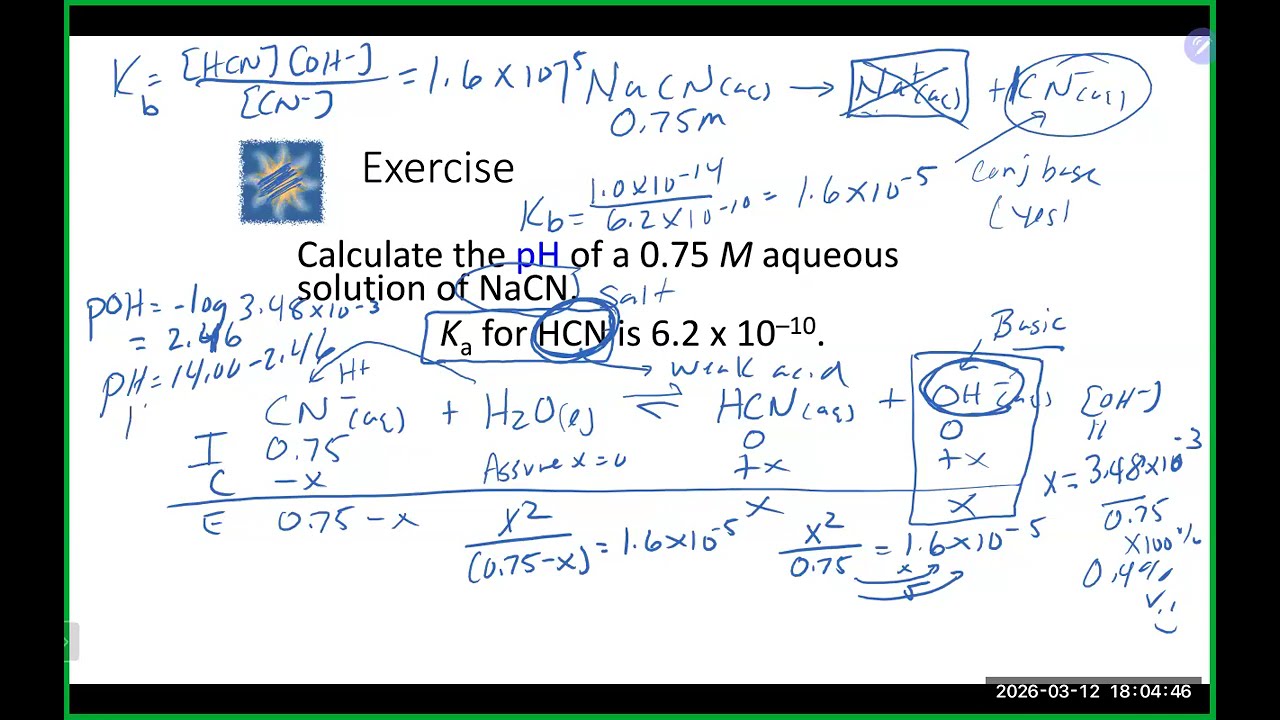 K_b = [HCN][OH-] / [CN-] = 1.6 x 10^-5
NaCN(aq) → Na+(aq) + CN-(aq)
0.75M
Conj base
(yes)
Exercise
Kb = 1.0x10-14 / 6.2x10-10 = 1.6x10-5
Calculate the pH of a 0.75 M aqueous
solution of NaCN.
Salt
Ka for HCN is 6.2 x 10–10.
weak acid
Basic
pOH = -log 3.48x10-3
= 2.46
pH = 14.00-2.46
H+
CN-(aq) + H2O(l) ⇌ HCN(aq) + OH-(aq)
I 0.75 0 0
C -x +x +x
Assume x=0
E 0.75-x x x
x2 / (0.75-x) = 1.6x10-5
x2 / 0.75 = 1.6x10-5
x
√
[OH-]
"
x = 3.48x10-3
0.75
x100%
0.4%
2026-03-12 18:04:46